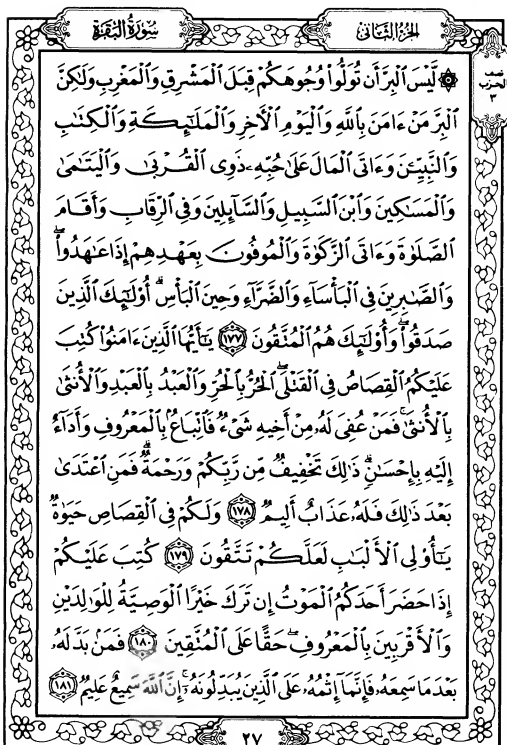 سُورَةُ البَقَرَةِ
الجُزْءُ الثَّانِي
نصف
الحزب
٣
۞ لَّيْسَ ٱلْبِرَّ أَن تُوَلُّوا۟ وُجُوهَكُمْ قِبَلَ ٱلْمَشْرِقِ وَٱلْمَغْرِبِ وَلَٰكِنَّ
ٱلْبِرَّ مَنْ ءَامَنَ بِٱللَّهِ وَٱلْيَوْمِ ٱلْءَاخِرِ وَٱلْمَلَٰٓئِكَةِ وَٱلْكِتَٰبِ
وَٱلنَّبِيِّۦنَ وَءَاتَى ٱلْمَالَ عَلَىٰ حُبِّهِۦ ذَوِى ٱلْقُرْبَىٰ وَٱلْيَتَٰمَىٰ
وَٱلْمَسَٰكِينَ وَٱبْنَ ٱلسَّبِيلِ وَٱلسَّآئِلِينَ وَفِى ٱلرِّقَابِ وَأَقَامَ
ٱلصَّلَوٰةَ وَءَاتَى ٱلزَّكَوٰةَ وَٱلْمُوفُونَ بِعَهْدِهِمْ إِذَا عَٰهَدُوا۟ ۖ
وَٱلصَّٰبِرِينَ فِى ٱلْبَأْسَآءِ وَٱلضَّرَّآءِ وَحِينَ ٱلْبَأْسِ ۗ أُو۟لَٰٓئِكَ ٱلَّذِينَ
صَدَقُوا۟ ۖ وَأُو۟لَٰٓئِكَ هُمُ ٱلْمُتَّقُونَ ١٧٧ يَٰٓأَيُّهَا ٱلَّذِينَ ءَامَنُوا۟ كُتِبَ
عَلَيْكُمُ ٱلْقِصَاصُ فِى ٱلْقَتْلَى ۖ ٱلْحُرُّ بِٱلْحُرِّ وَٱلْعَبْدُ بِٱلْعَبْدِ وَٱلْأُنثَىٰ
بِٱلْأُنثَىٰ ۚ فَمَنْ عُفِىَ لَهُۥ مِنْ أَخِيهِ شَىْءٌ فَٱتِّبَاعٌۢ بِٱلْمَعْرُوفِ وَأَدَآءٌ
إِلَيْهِ بِإِحْسَٰنٍ ۗ ذَٰلِكَ تَخْفِيفٌ مِّن رَّبِّكُمْ وَرَحْمَةٌ ۗ فَمَنِ ٱعْتَدَىٰ
بَعْدَ ذَٰلِكَ فَلَهُۥ عَذَابٌ أَلِيمٌ ١٧٨ وَلَكُمْ فِى ٱلْقِصَاصِ حَيَوٰةٌ
يَٰٓأُو۟لِى ٱلْأَلْبَٰبِ لَعَلَّكُمْ تَتَّقُونَ ١٧٩ كُتِبَ عَلَيْكُمْ
إِذَا حَضَرَ أَحَدَكُمُ ٱلْمَوْتُ إِن تَرَكَ خَيْرًا ٱلْوَصِيَّةُ لِلْوَٰلِدَيْنِ
وَٱلْأَقْرَبِينَ بِٱلْمَعْرُوفِ ۖ حَقًّا عَلَى ٱلْمُتَّقِينَ ١٨٠ فَمَنۢ بَدَّلَهُۥ
بَعْدَ مَا سَمِعَهُۥ فَإِنَّمَآ إِثْمُهُۥ عَلَى ٱلَّذِينَ يُبَدِّلُونَهُۥٓ ۚ إِنَّ ٱللَّهَ سَمِيعٌ عَلِيمٌ ١٨١
٢٧